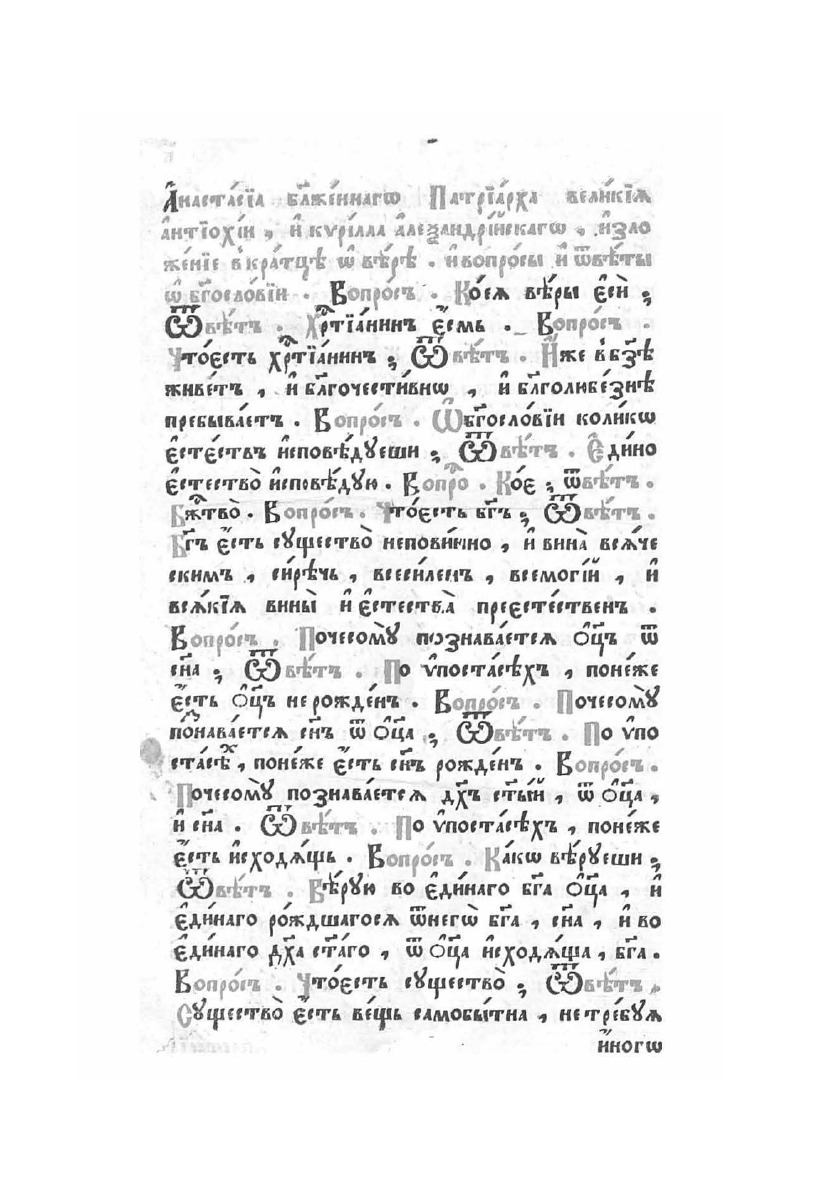 А҆наста́сїа бл҃же́ннагѡ Патрїа́рха вели́кїѧ
а҆нтїохі́и , и҆ кѷри́лла а҆леѯандрі́йскагѡ , и҆зло
же́нїе в кра́тцѣ ѡ҆ вѣ́рѣ . и҆ вопро́сы и҆ ѿвѣ́ты
ѡ҆ бг҃осло́вїи . Вопро́съ . Ко́еѧ вѣ́ры є҆сѝ ;
Ѿвѣ́тъ . Хрⷭ҇тїа́нинъ є҆́смь . Вопро́съ .
Что́есть хрⷭ҇тїа́нинъ ; Ѿвѣ́тъ . И҆́же в бз҃ѣ
живе́тъ , и҆ бл҃гочести́внѡ , и҆ бл҃голюбе́знѣ
пребыва́етъ . Вопро́съ . Ѡ҆ бг҃осло́вїи коли́кѡ
є҆сте́ствъ и҆сповѣ́дуеши ; Ѿвѣ́тъ . Є҆ди́но
є҆стество̀ и҆сповѣ́дую . Вопро́ⷭ . Ко́е ; ѿвѣ́тъ .
Бжⷭ҇тво̀ . Вопро́съ . Что́есть бг҃ъ ; Ѿвѣ́тъ .
Бг҃ъ є҆́сть существо̀ непови́нно , и҆ вина̀ всѧ́че
скимъ , си́рѣчь , всеси́ленъ , всемогі́й , и҆
всѧ́кїѧ вины̀ и҆ є҆стества̀ преесте́ственъ .
Вопро́съ . Почесомꙋ̀ познава́етсѧ ѻ҆ц҃ъ ѿ
сн҃а ; Ѿвѣ́тъ . По ѵ҆поста́сѣхъ , поне́же
є҆́сть ѻ҆ц҃ъ не рожде́нъ . Вопро́съ . Почесомꙋ̀
поⷥнава́етсѧ сн҃ъ ѿ ѻ҆ц҃а ; Ѿвѣ́тъ . По ѵ҆по
ста́сѣⷯ , поне́же є҆́сть сн҃ъ рожде́нъ . Вопро́съ .
Почесомꙋ̀ познава́етсѧ дх҃ъ ст҃ы́й , ѿ ѻ҆ц҃а ,
и҆ сн҃а . Ѿвѣ́тъ . По ѵ҆поста́сѣхъ , поне́же
є҆́сть и҆сходѧ́щь . Вопро́съ . Ка́кѡ вѣ́руеши ;
Ѿвѣ́тъ . Вѣ́рую во є҆ди́наго бг҃а ѻ҆ц҃а , и҆
є҆ди́наго ро́ждшагосѧ ѿнегѡ̀ бг҃а , сн҃а , и҆ во
є҆ди́наго дх҃а ст҃а́го , ѿ ѻ҆ц҃а и҆сходѧ́ща , бг҃а .
Вопро́съ . Что́есть существо̀ ; Ѿвѣ́тъ .
Существо̀ є҆́сть ве́щь самобы́тна , не тре́буѧ
и҆́ногѡ